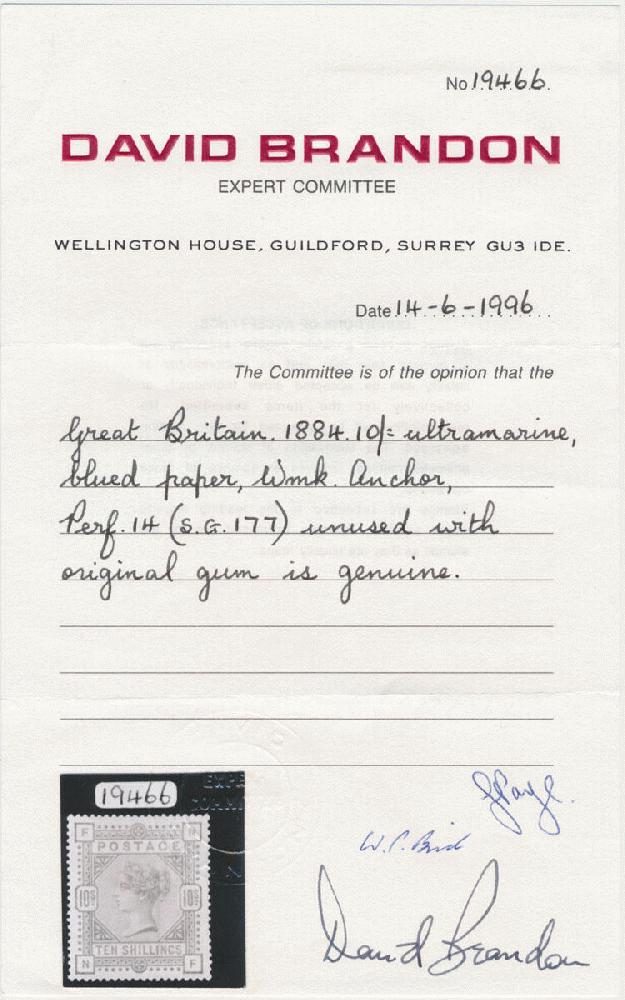 No 19466.
DAVID BRANDON
EXPERT COMMITTEE
WELLINGTON HOUSE, GUILDFORD, SURREY GU3 IDE.
Date 14-6-1996
The Committee is of the opinion that the
Great Britain. 1884. 10/= ultramarine,
blued paper, Wmk. Anchor,
Perf. 14 (S.G. 177) unused with
original gum is genuine.
19466
F H
POSTAGE
10S 10S
TEN SHILLINGS
N F
W.C. Bird
David Brandon